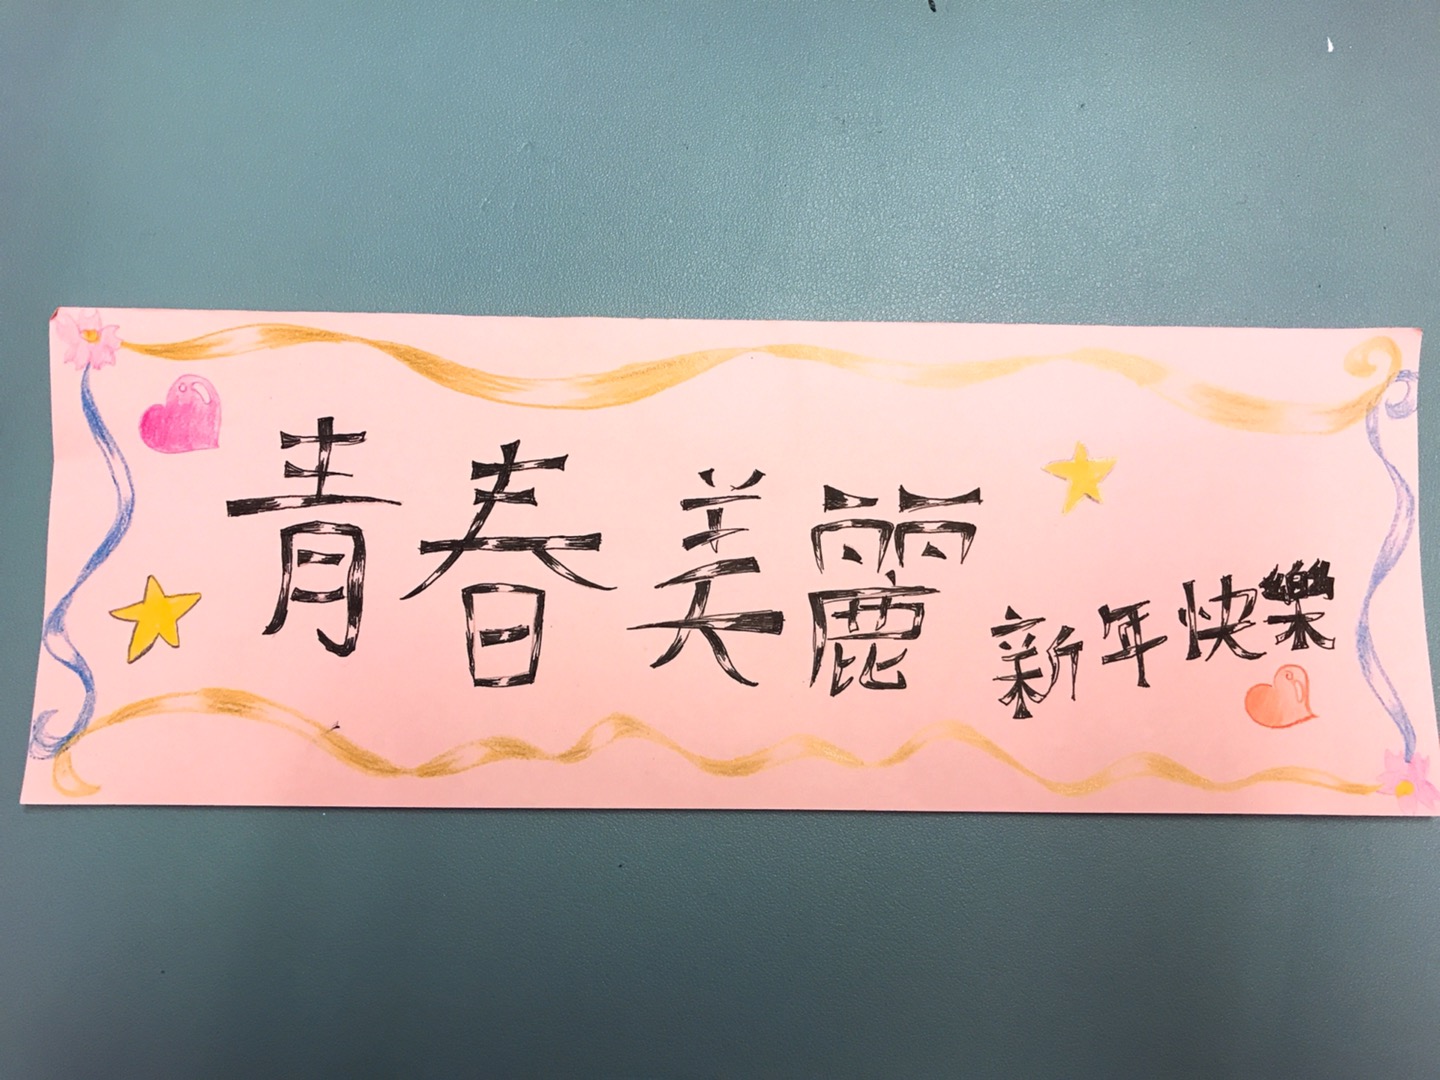 青春美麗
新年快樂